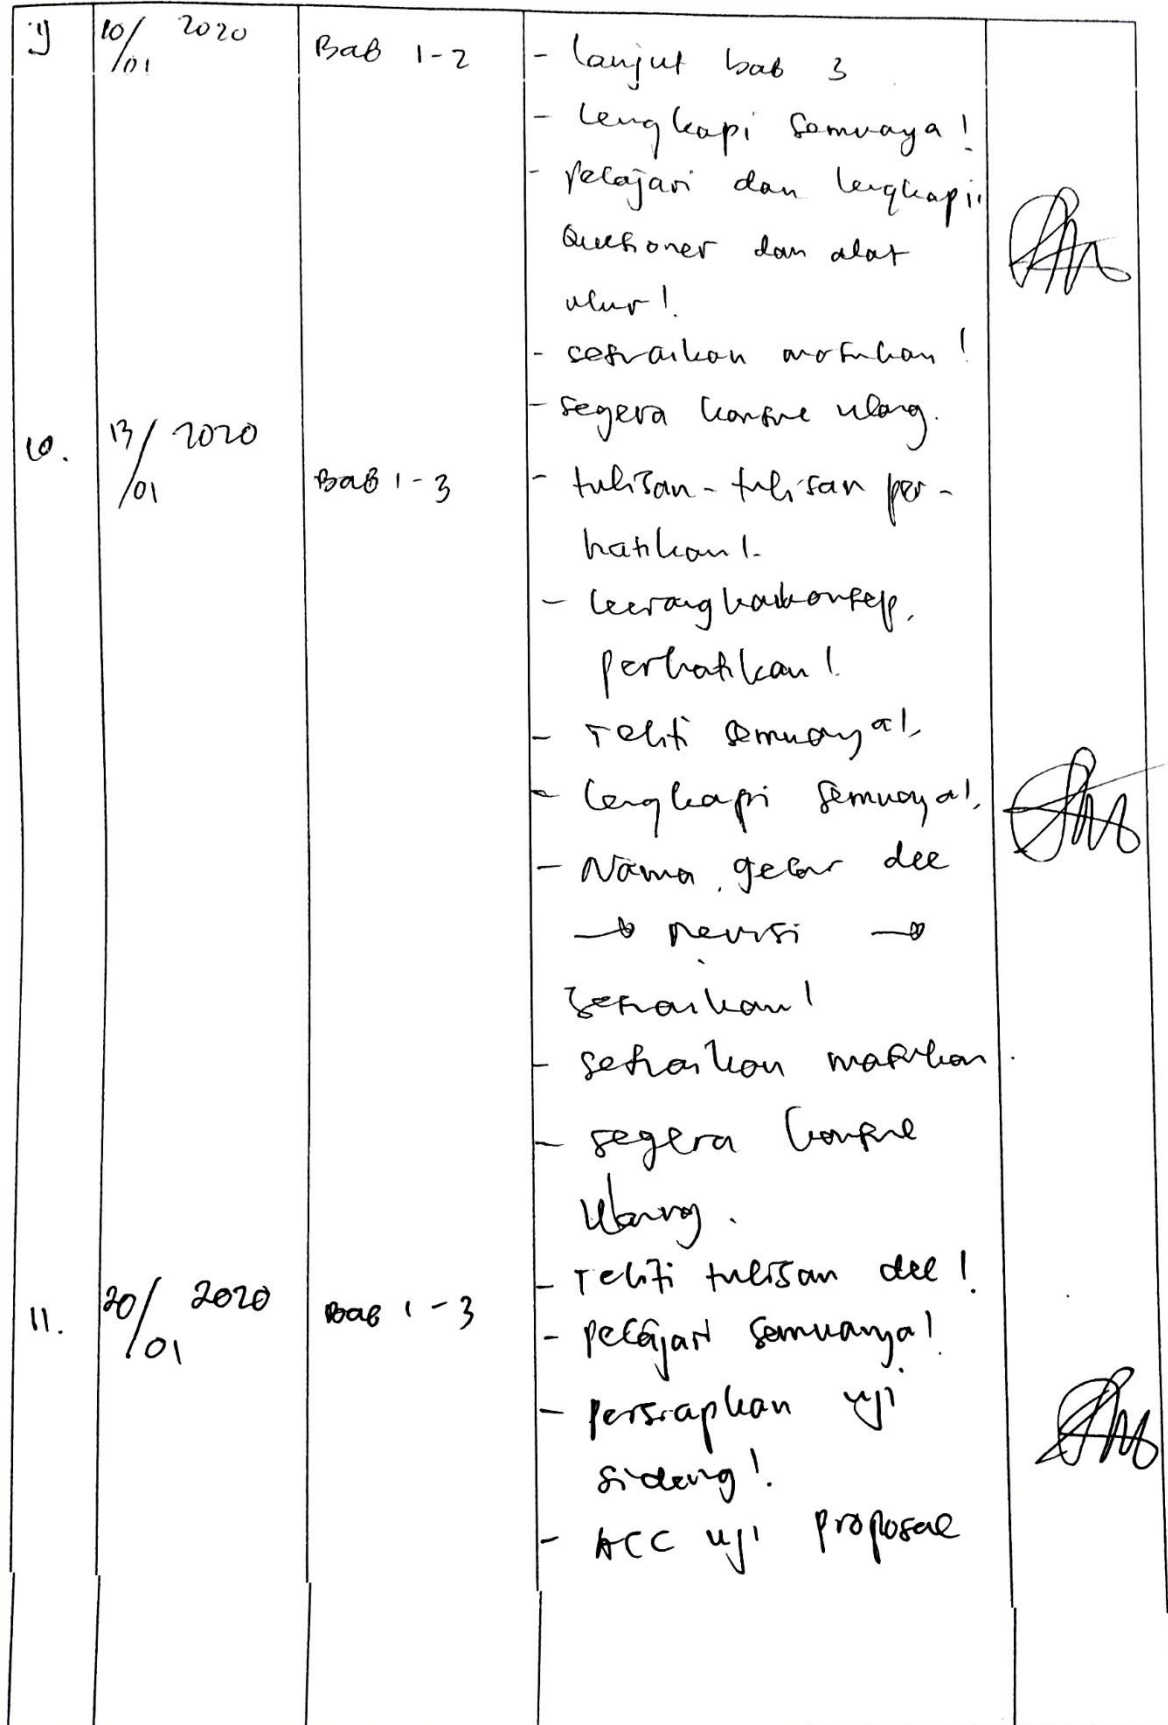 9 10/01 2020 Bab 1-2 - lanjut bab 3
- lengkapi semuaya!
- pelajari dan lengkapi
Quesioner dan alat
ukur!
- sesuaikan masukan!
- segera konsul ulang.
10. 13/01 2020
Bab 1-3 - tulisan-tulisan per-
hatikan!
- kerangka konsep,
perhatikan!
- Teliti semuanya!
- lengkapi semuanya!
- Nama, gelar dll
→ revisi →
sesuaikan!
- sesuaikan masukan.
- segera konsul
ulang.
- Teliti tulisan dll!
11. 20/01 2020 Bab 1-3 - pelajari semuanya!
- persiapkan uji
sidang!
- ACC uji proposal